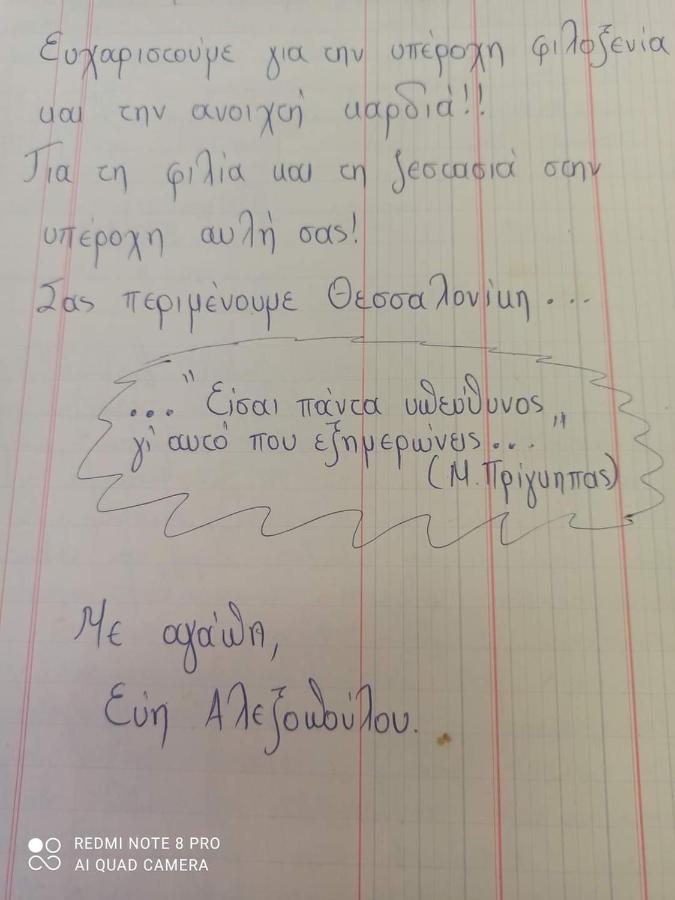 Ευχαριστούμε για την υπέροχη φιλοξενία
και την ανοιχτή καρδιά!!
Για τη φιλία και τη ζεστασιά στην
υπέροχη αυλή σας!
Σας περιμένουμε Θεσσαλονίκη...
..." Είσαι πάντα υπεύθυνος
γι' αυτό που εξημερώνεις... "
(Μ. Πρίγκηπας)
Με αγάπη,
Εύη Αλεξοπούλου.
REDMI NOTE 8 PRO
AI QUAD CAMERA